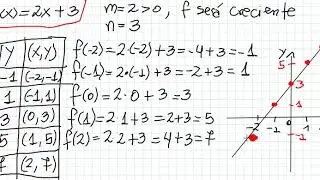 (x)=2x+3
m=2>0, f será creciente
n=3
Y (x,y)
-1 (-2,-1)
1 (-1,1)
3 (0,3)
5 (1,5)
7 (2,7)
f(-2)=2·(-2)+3=-4+3=-1
f(-1)=2·(-1)+3=-2+3=1
f(0)=2·0+3=3
f(1)=2·1+3=2+3=5
f(2)=2·2+3=4+3=7
y
5
3
1
-2 -1 0 1